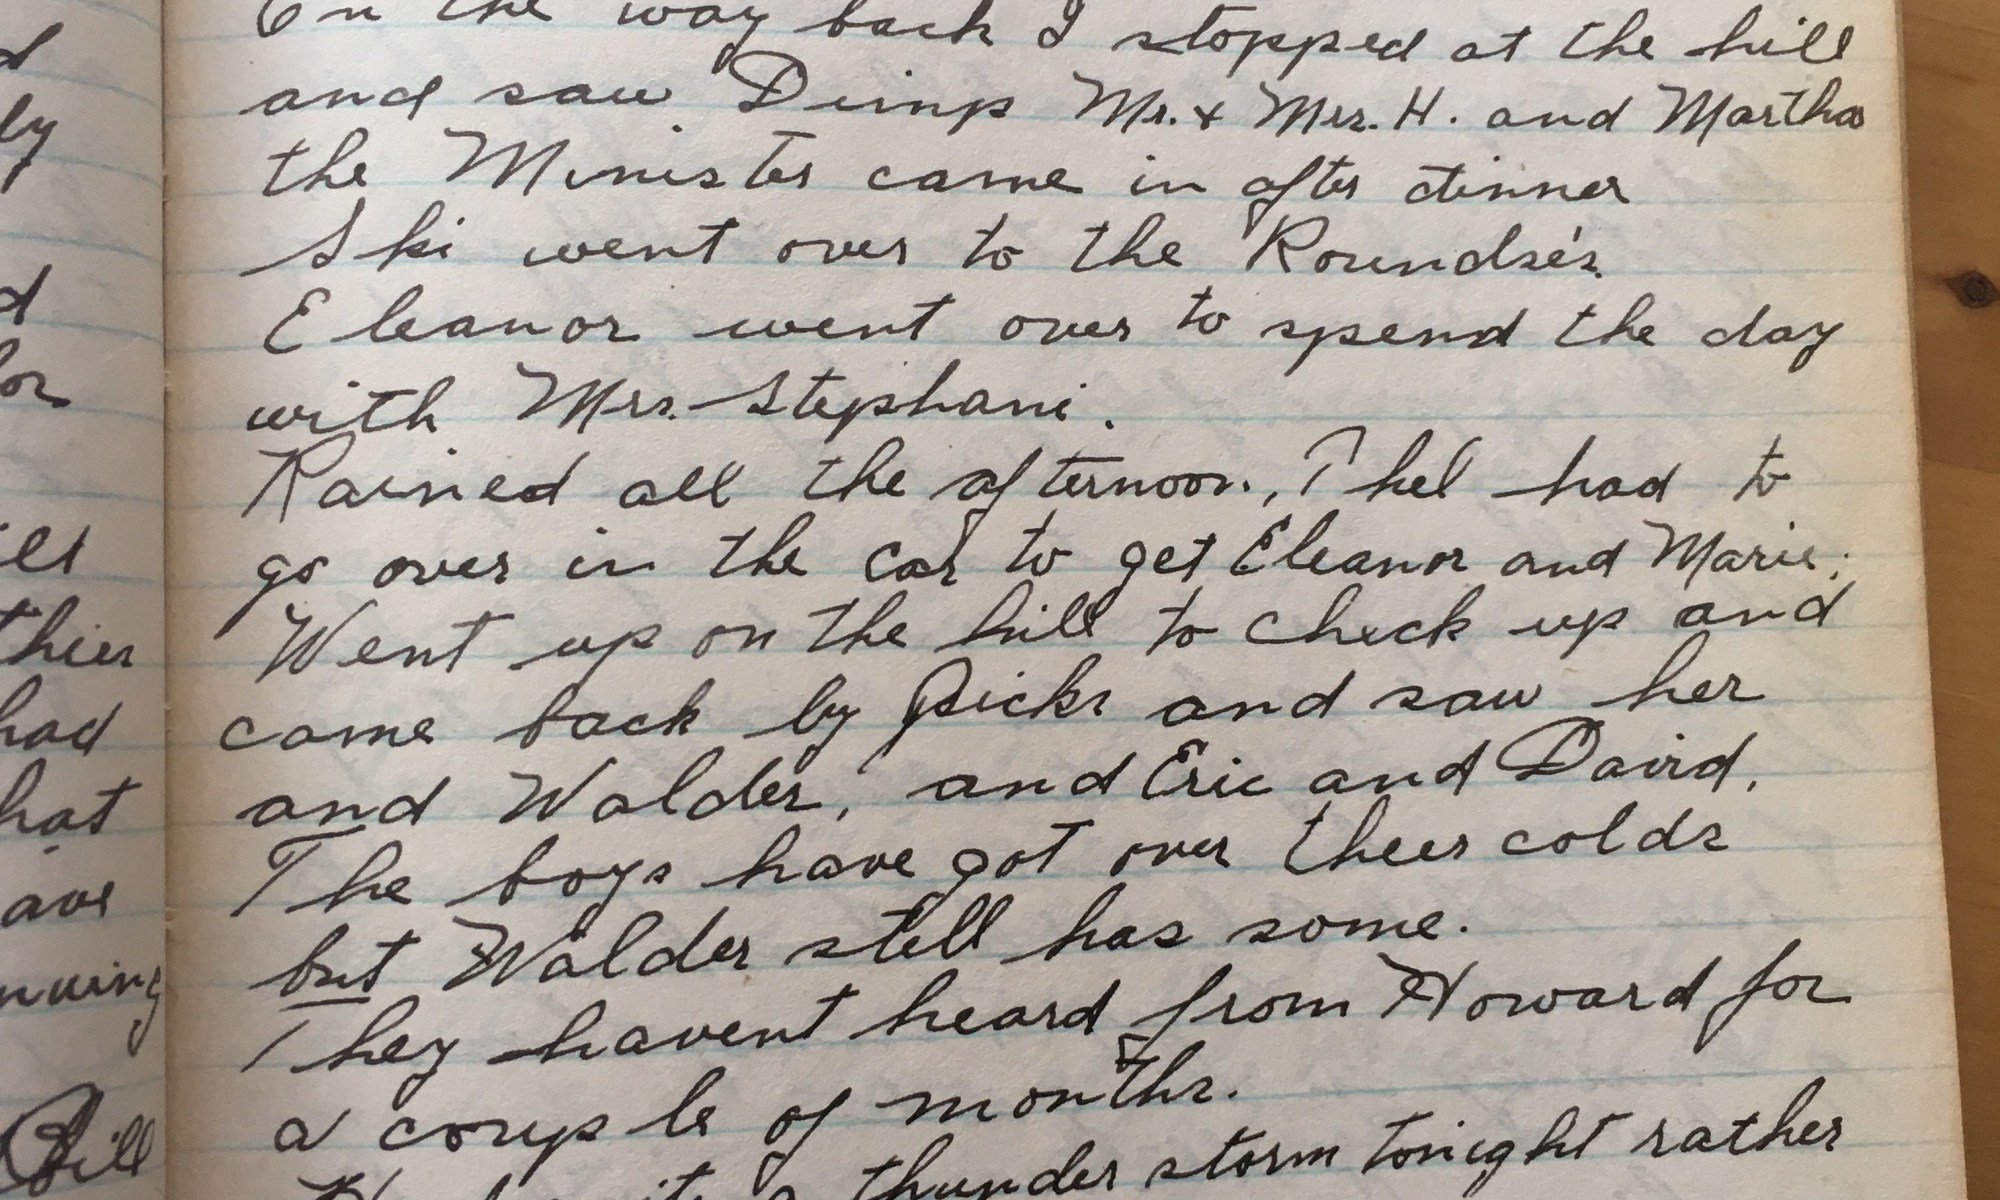 On the way back I stopped at the hill
and saw Dimp Mr. & Mrs. H. and Martha
the Minister came in after dinner
Ski went over to the Roundse's.
Eleanor went over to spend the day
with Mrs. Stephani.
Rained all the afternoon., Thel had to
go over in the car to get Eleanor and Marie.
Went up on the hill to check up and
came back by Dicks and saw her
and Walder, and Eric and David.
The boys have got over their colds
but Walder still has some.
They havent heard from Howard for
a couple of months.
thunder storm tonight rather
ly
for
had
Bill